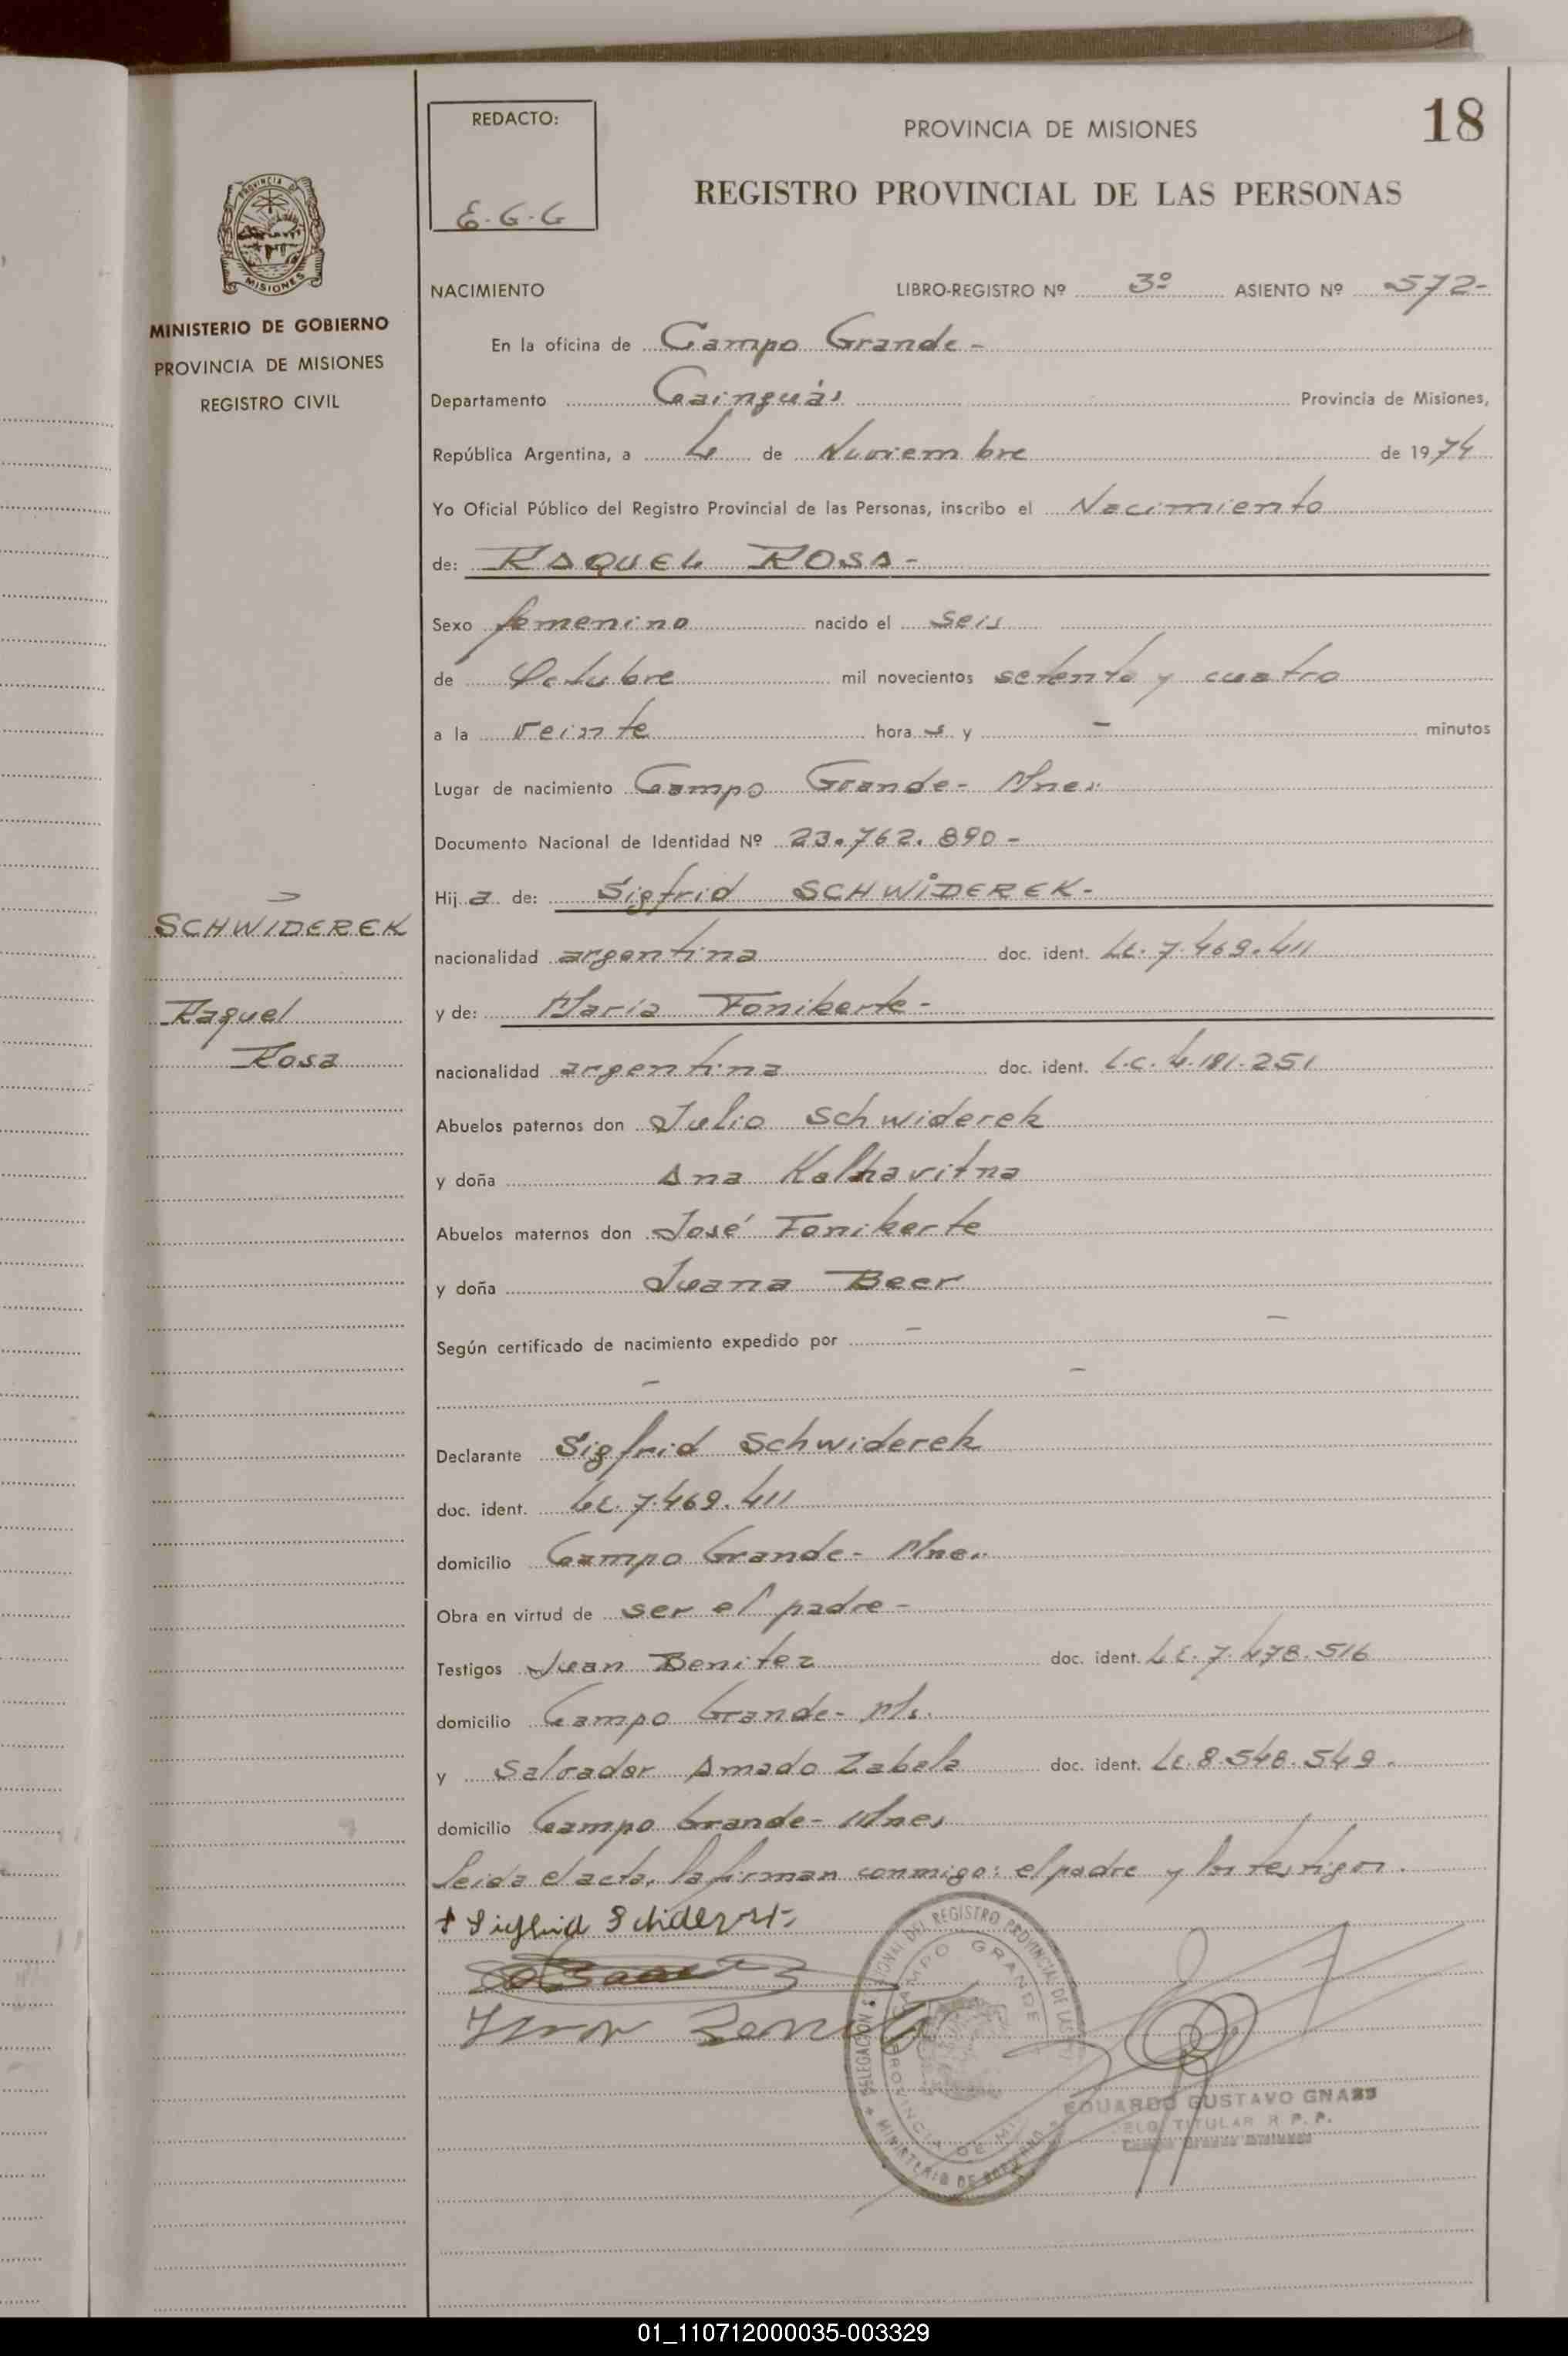 REDACTO:
E.G.G
PROVINCIA DE MISIONES
18
REGISTRO PROVINCIAL DE LAS PERSONAS
PROVINCIA DE
MISIONES
MINISTERIO DE GOBIERNO
PROVINCIA DE MISIONES
REGISTRO CIVIL
NACIMIENTO LIBRO-REGISTRO Nº 3º ASIENTO Nº 572-
En la oficina de Campo Grande-
Departamento Cainguás Provincia de Misiones,
República Argentina, a 4 de Noviembre de 1974
Yo Oficial Público del Registro Provincial de las Personas, inscribo el Nacimiento
de: RAQUEL ROSA-
Sexo femenino nacido el seis
de Octubre mil novecientos setenta y cuatro
a la veinte hora s y - minutos
Lugar de nacimiento Campo Grande- Mnes
Documento Nacional de Identidad Nº 23.762.890-
Hij a de: Sigfrid SCHWIDEREK-
SCHWIDEREK
Raquel
Rosa
nacionalidad argentina doc. ident. LE. 7.469.411
y de: María Fonikerte-
nacionalidad argentina doc. ident. L.C. 4.181.251
Abuelos paternos don Julio Schwiderek
y doña Ana
Abuelos maternos don José Fonikerte
y doña Juana Beer
Según certificado de nacimiento expedido por - -
- -
Declarante Sigfrid Schwiderek
doc. ident. LE. 7.469.411
domicilio Campo Grande- Mnes
Obra en virtud de ser el padre-
Testigos Juan Benitez doc. ident. LE. 7.478.516
domicilio Campo Grande- Ms.
y Salvador Amado Zabala doc. ident. LE. 8.548.549.
domicilio Campo Grande- Mnes
Leida el acta, la firman conmigo: el padre y los testigos.
DELEGACION SECCIONAL DEL REGISTRO PROVINCIAL DE LAS
CAMPO GRANDE
PROVINCIA DE MI
MINISTERIO DE GOBIERNO
EDUARDO GUSTAVO GNASS
DELG. TITULAR R.P.P.
Campo Grande Misiones
01_110712000035-003329